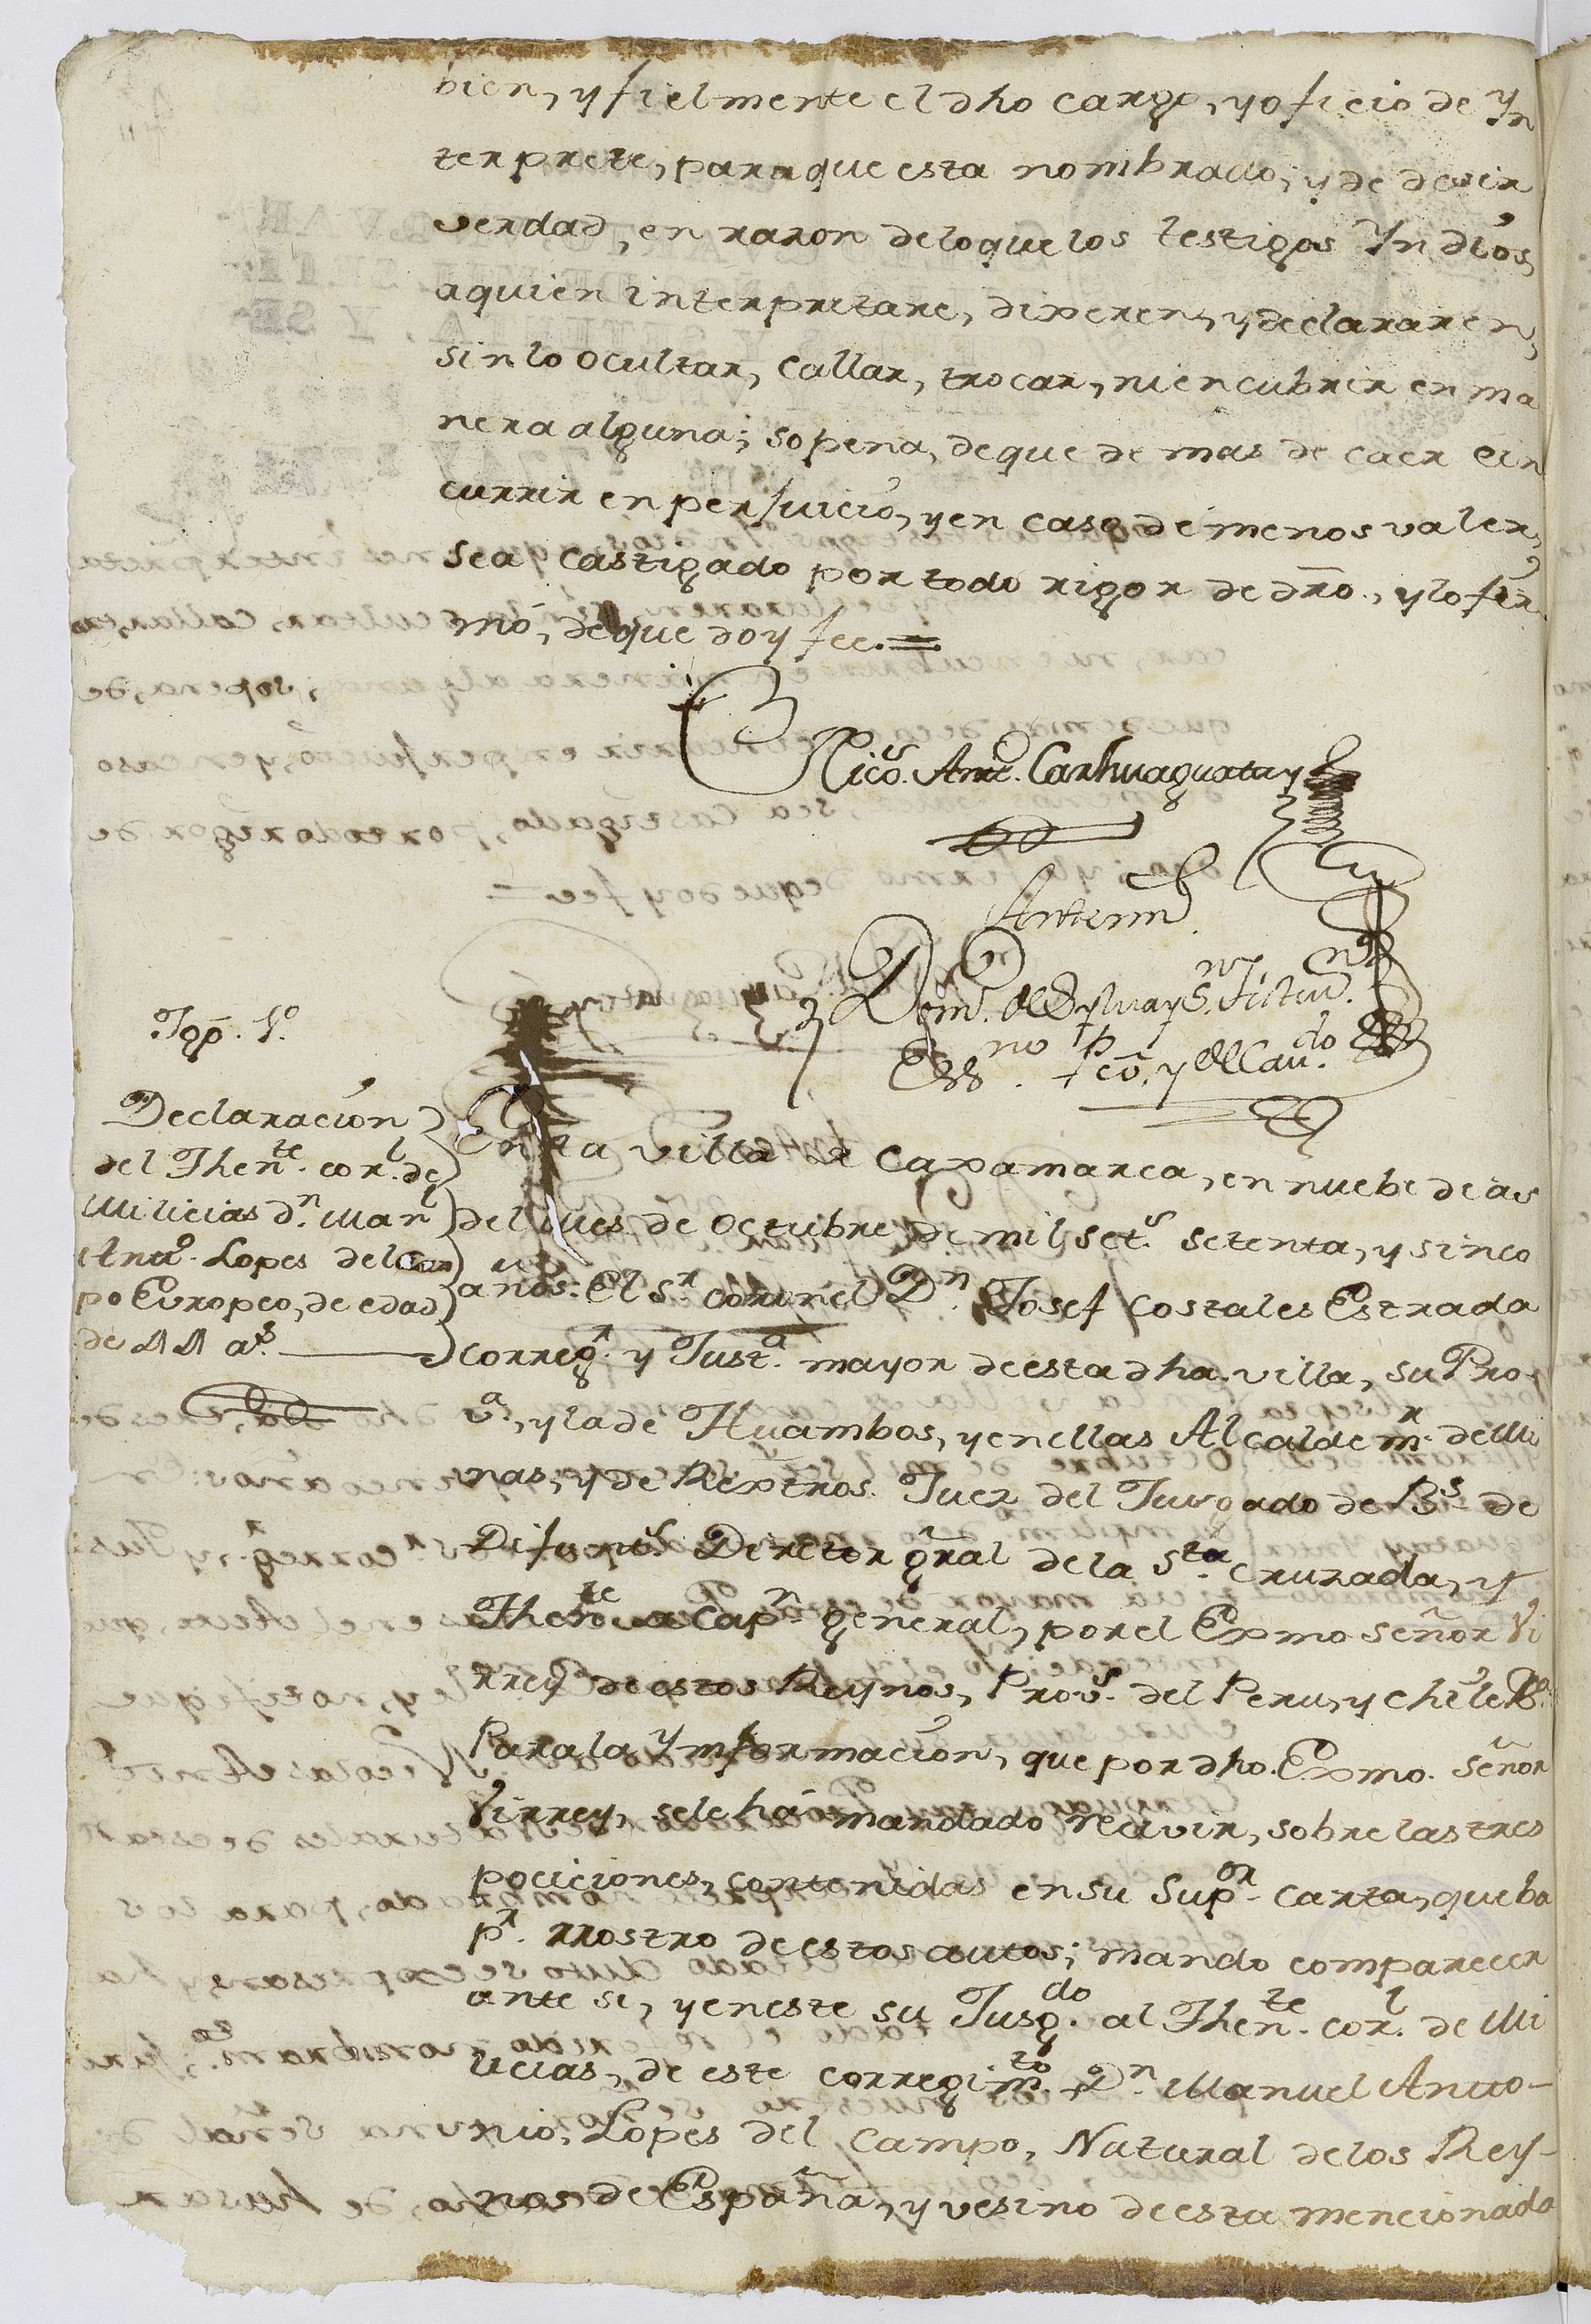 bien, y fielmente el dho cargo, y oficio de Yn
terprete, para que esta nombrado, y de desir
verdad, en razon de lo que los testigos Yndios,
a quien interpretare, dixeren, y declararen,
sin lo ocultar, callar, trocar, ni encubrir en ma
nera alguna; so pena, de que de mas de caer e in
currir en perjuicio, y en caso de menos valer,
sea castigado por todo rigor de dro., y lo fir
mó, de que doy fee.=
Nico.s Anto. Carhuaguatay
Antemi
Esno pco. y del Cavdo
Tgo. 1o.
Declaracion
del Thente. corl. de
Milicias dn. Manl
Anto. Lopes del Cam
po Europeo, de edad
de 44 as.
En la Villa de Caxamarca, en nuebe de as
del mes de Octubre de mil sets. setenta, y sinco
años: El Sr. coronel Dn. Josef Costales Estrada
Corregr. y Justa. mayor de esta dha. villa, su Pro-
va., y la de Huambos, y en ellas Alcalde mr. de Mi
nas, y de Rextros. Juez del Jusgado de Bs. de
Difuntos. Diretor gral de la Sta. Cruzada, y
Thente a Capn. general, por el Exmo Señor Vi
rrey de estos Reynos, Provs. del Peru, y Chile &a.
Para la Ynformacion, que por dho. Exmo. Señor
Virrey, se le há mandado resivir, sobre las tres
pociciones, contenidas en su Supor. carta, que ba
pr. rrostro de estos autos; mando comparecer
ante si, y en este su Jusgdo. al Thente. corl. de Mi
licias, de este corregimto. Dn. Manuel Anto-
nio, Lopes del Campo, Natural de los Rey-
nos de España, y vesino de esta mencionada